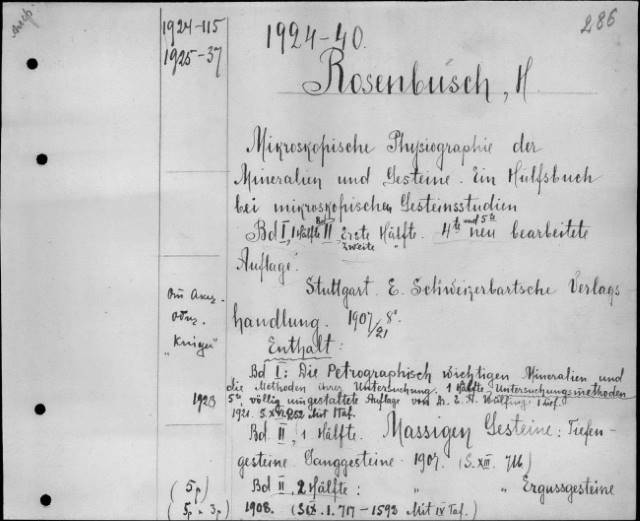 286
1924-115
1925-37
1924-40.
Rosenbusch, H
Mikroskopische Physiographie der
Mineralien und Gesteine. Ein Hülfsbuch
bei mikroskopischen Gesteinsstudien
Bd I, 1 Hälfte Bd II, Erste Hälfte. 4te und 5te neu bearbeitete
zweite "
Auflage.
Stuttgart. E. Schweizerbartsche Verlags
handlung. 1907/21 8°.
Enthält:
Bd I: Die Petrographisch wichtigen Mineralien und
die Methoden ihrer Untersuchung. 1 Hälfte Untersuchungsmethoden
1923
5te völlig umgestaltete Auflage von Dr. E. A. Wülfing
1921. 252 Mit 1 Taf.
Bd. II, 1 Hälfte. Massigen Gesteine: Tiefen-
gesteine. Ganggesteine. 1907. (S. XIII. 716)
(5p)
Bd II, 2 Hälfte: " " Ergussgesteine
(5p + 3p)
1908. (S IX. I. 717-1592 Mit IV Taf.)